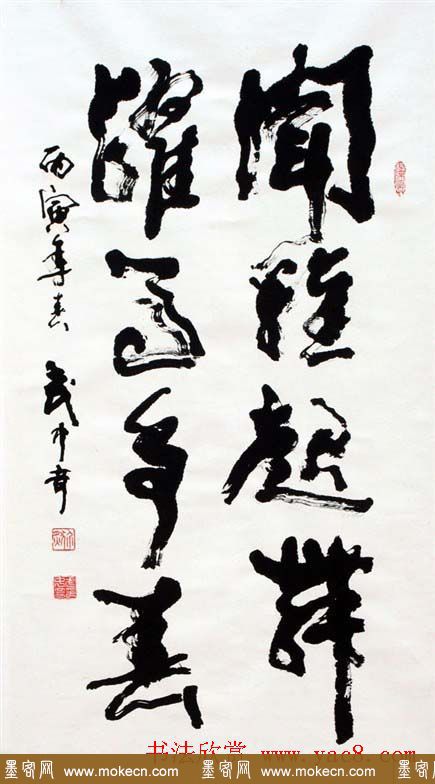 聞雞起舞
躍馬争春
丙寅年春 武中奇
书法欣赏 www.yac8.com
墨客网 www.mokecn.com 墨客网 www.mokecn.com 墨客网 www.mokecn.com